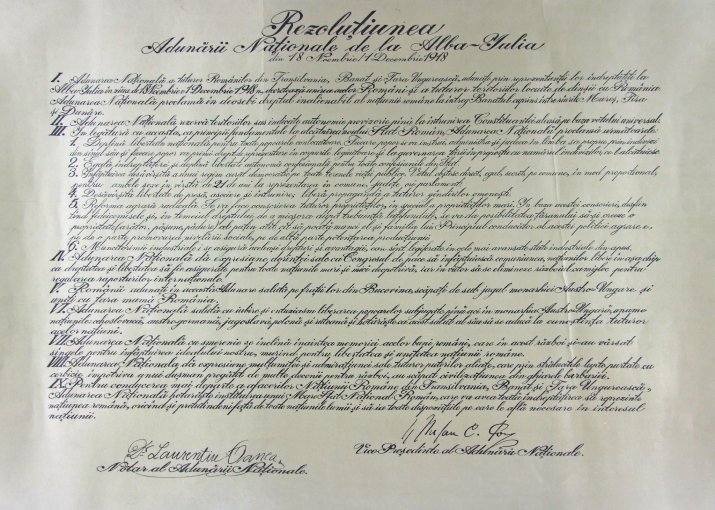 Rezoluțiunea
Adunării Naționale de la Alba-Iulia
din 18 Noembrie/1 Decembrie 1918
I. Adunarea Națională a tuturor Românilor din Transilvania, Banat și Țara Ungurească, adunați prin reprezentanții lor îndreptățiți la
Alba-Iulia în ziua de 18 Noembrie/1 Decembrie 1918, decretează unirea acelor Români și a tuturor teritoriilor locuite de dânșii cu România.
Adunarea Națională proclamă îndeosebi dreptul inalienabil al națiunii române la întreg Banatul, cuprins între râurile Mureș, Tisa
și Dunăre.
II. Adunarea Națională rezervă teritoriilor sus indicate autonomie provizorie până la întrunirea Constituantei aleasă pe baza votului universal.
III. În legătură cu aceasta, ca principii fundamentale la alcătuirea noului Stat Român, Adunarea Națională proclamă următoarele:
1. Deplină libertate națională pentru toate popoarele conlocuitoare. Fiecare popor se va instrui, administra și judeca în limba sa proprie prin indivizi
din sânul său și fiecare popor va primi drept de reprezentare în corpurile legiuitoare și la guvernarea țării în proporție cu numărul indivizilor ce-l alcătuiesc.
2. Egală îndreptățire și deplină libertate autonomă confesională pentru toate confesiunile din Stat.
3. Înfăptuirea desăvârșită a unui regim curat democratic pe toate terenele vieții publice. Votul obștesc direct, egal, secret, pe comune, în mod proporțional,
pentru ambele sexe în vârstă de 21 de ani la reprezentarea în comune, județe, ori parlament.
4. Desăvârșită libertate de presă, asociere și întrunire, liberă propagandă a tuturor gândurilor omenești.
5. Reforma agrară radicală. Se va face conscrierea tuturor proprietăților, în special a proprietăților mari. În baza acestei conscrieri, desființând
fideicomisele și, în temeiul dreptului de a micșora după trebuință latifundiile, se va da posibilitatea țăranului să-și creeze o
proprietate (arător, pășune, pădure) cel puțin atât cât să poată munci el și familia lui. Principiul conducător al acestei politici agrare e
pe de o parte promovarea nivelării sociale, pe de altă parte potențarea producțiunii.
6. Muncitorimei industriale i se asigură aceleași drepturi și avantagii, cari sunt legiferate în cele mai avansate state industriale din apus.
IV. Adunarea Națională dă expresiune dorinței sale ca Congresul de pace să înfăptuiască comuniunea națiunilor libere în așa chip,
ca dreptatea și libertatea să fie asigurate pentru toate națiunile mari și mici deopotrivă, iar în viitor să se elimineze războiul ca mijloc pentru
regularea raporturilor internaționale.
V. Românii adunați în această Adunare salută pe frații lor din Bucovina, scăpați de sub jugul monarhiei Austro-Ungare și
uniți cu țara mumă România.
VI. Adunarea Națională salută cu iubire și entuziasm liberarea popoarelor subjugate până aci în monarhia Austro-Ungară, anume
națiunile: cehoslovacă, austro-germană, jugoslavă, polonă și ruteană și hotărăște ca acest salut al său să se aducă la cunoștința tuturor
acelor națiuni.
VII. Adunarea Națională cu smerenie se închină înaintea memoriei acelor bravi români, care în acest război și-au vărsat
sângele pentru înfăptuirea idealului nostru, murind pentru libertatea și unitatea națiunii române.
VIII. Adunarea Națională dă expresiune mulțumitei și admirațiunei sale tuturor puterilor aliate, care prin strălucitele lupte purtate cu
cerbicie împotriva unui dușman pregătit de multe decenii pentru război, au scăpat civilizațiunea din ghiarele barbariei.
IX. Pentru conducerea mai departe a afacerilor Națiunii Române din Transilvania, Banat și Țara Ungurească,
Adunarea Națională hotărăște instituirea unui Mare Sfat Național Român, care va avea toată îndreptățirea să reprezinte
națiunea română, oricând și pretutindeni față de toate națiunile lumii și să ia toate dispozițiile pe care le află necesare în interesul
națiunii.
Dr. Laurențiu Oanea
Notar al Adunării Naționale.
Ștefan C. Pop
Vice Președinte al Adunării Naționale.